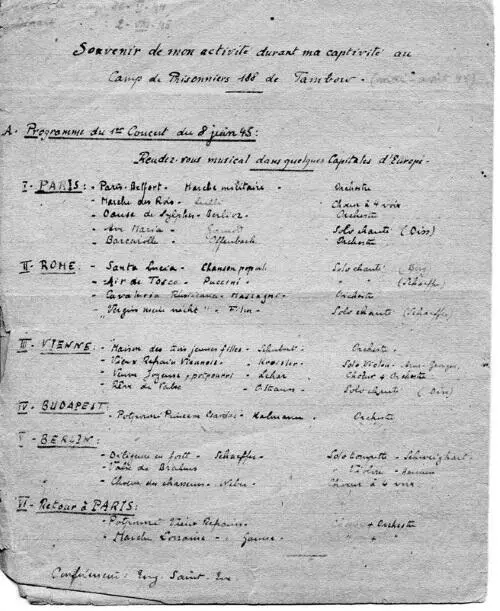 2-VIII-45
Souvenir de mon activité durant ma captivité au
Camp de Prisonniers 188 de Tambow.
A. Programme du 1er Concert du 8 juin 45:
Rendez-vous musical dans quelques Capitales d'Europe.
I - PARIS: - Paris-Belfort - Marche militaire - Orchestre
- Marche des Rois - Lulli Chœur à 4 voix
- Danse de Sylphes - Berlioz - Orchestre
- Ave Maria - Gounod Solo chanté (Diss)
- Barcarolle - Offenbach Orchestre
II - ROME: - Santa Lucia - Chanson popul. Solo chanté
- Air de Tosca - Puccini - " " (Schaeffer)
- Cavaleria Rusticana - Mascagni - Orchestre
- "Vergiss mein nicht" - Film - Solo chanté (Schaeffer)
III - VIENNE: - Maison des trois jeunes filles - Schubert - Orchestre
- Vieux Refrain Viennois - Kreisler - Solo Violon
- Veuve Joyeuse, potpourri - Lehar Chœur & Orchestre
- Rêve de Valse - O Straus - Solo chanté (Diss)
IV - BUDAPEST: - Potpourri Princesse Csardas - Kalmann - Orchestre
V - BERLIN: - en forêt - Schaeffer - Solo trompette - Schweighart
- Valse de Brahms Violon
- Chœur des chasseurs - Weber - Chœur à 4 voix
VI - Retour à PARIS:
- Potpourri Vieux Refrains - + Orchestre
- Marche Lorraine - Ganne - " + "
Conférencier: Eug. Saint-Eve